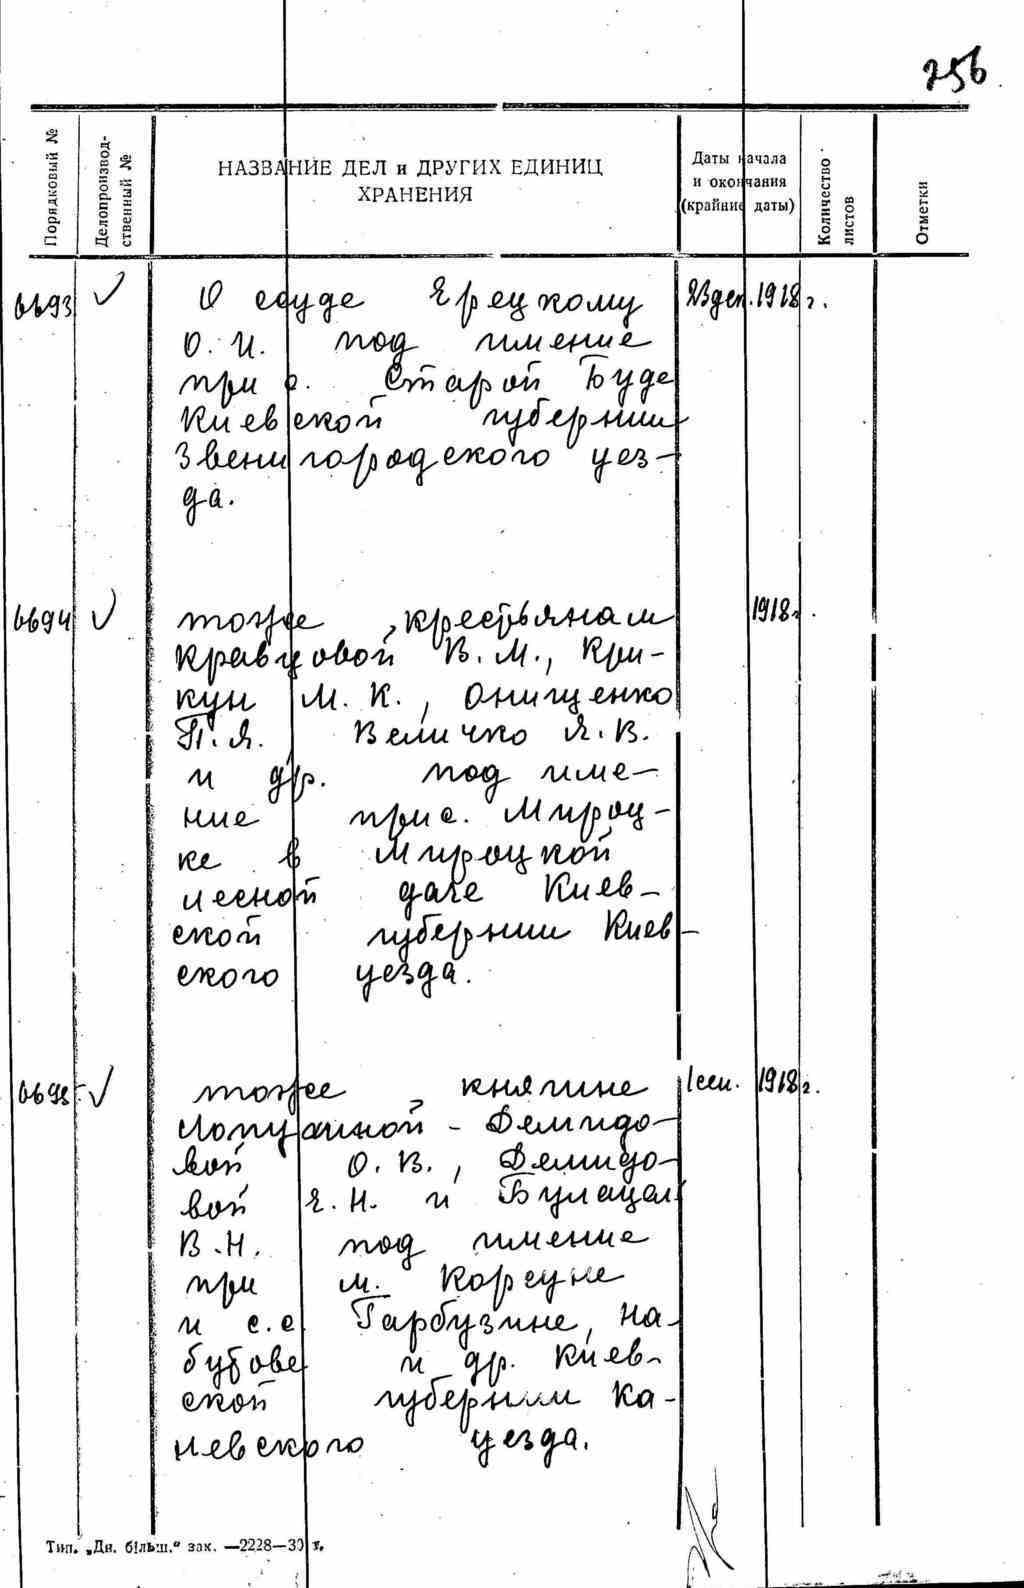 256
Порядковый №
Делопроизвод-
ственный №
НАЗВАНИЕ ДЕЛ и ДРУГИХ ЕДИНИЦ
ХРАНЕНИЯ
Даты начала
и окончания
(крайние даты)
Количество
листов
Отметки
6693 О ссуде Ерецкому 23 дек. 1918 г.
О. И. под имение
при с. Старой Буде
Киевской губернии
Звенигородского уез-
да.
6694 тоже, крестьянам 1918 г.
Кравцовой В. М., Кри-
кун М. К., Онищенко
П. Я. Величко Я. В.
и др. под име-
ние при с. Мироц-
ке в Мироцкой
лесной даче Киев-
ской губернии Киев-
ского уезда.
6695 тоже, княгине 1 сен. 1918 г.
Лопухиной - Демидо-
вой О. В., Демидо-
вой Е. Н. и
В. Н. под имение
при м. Корсуне
и с.с. Гарбузине, На-
бутове и др. Киев-
ской губернии Ка-
невского уезда.
Тип. „Дн. більш.“ зак. —2228—30 г.